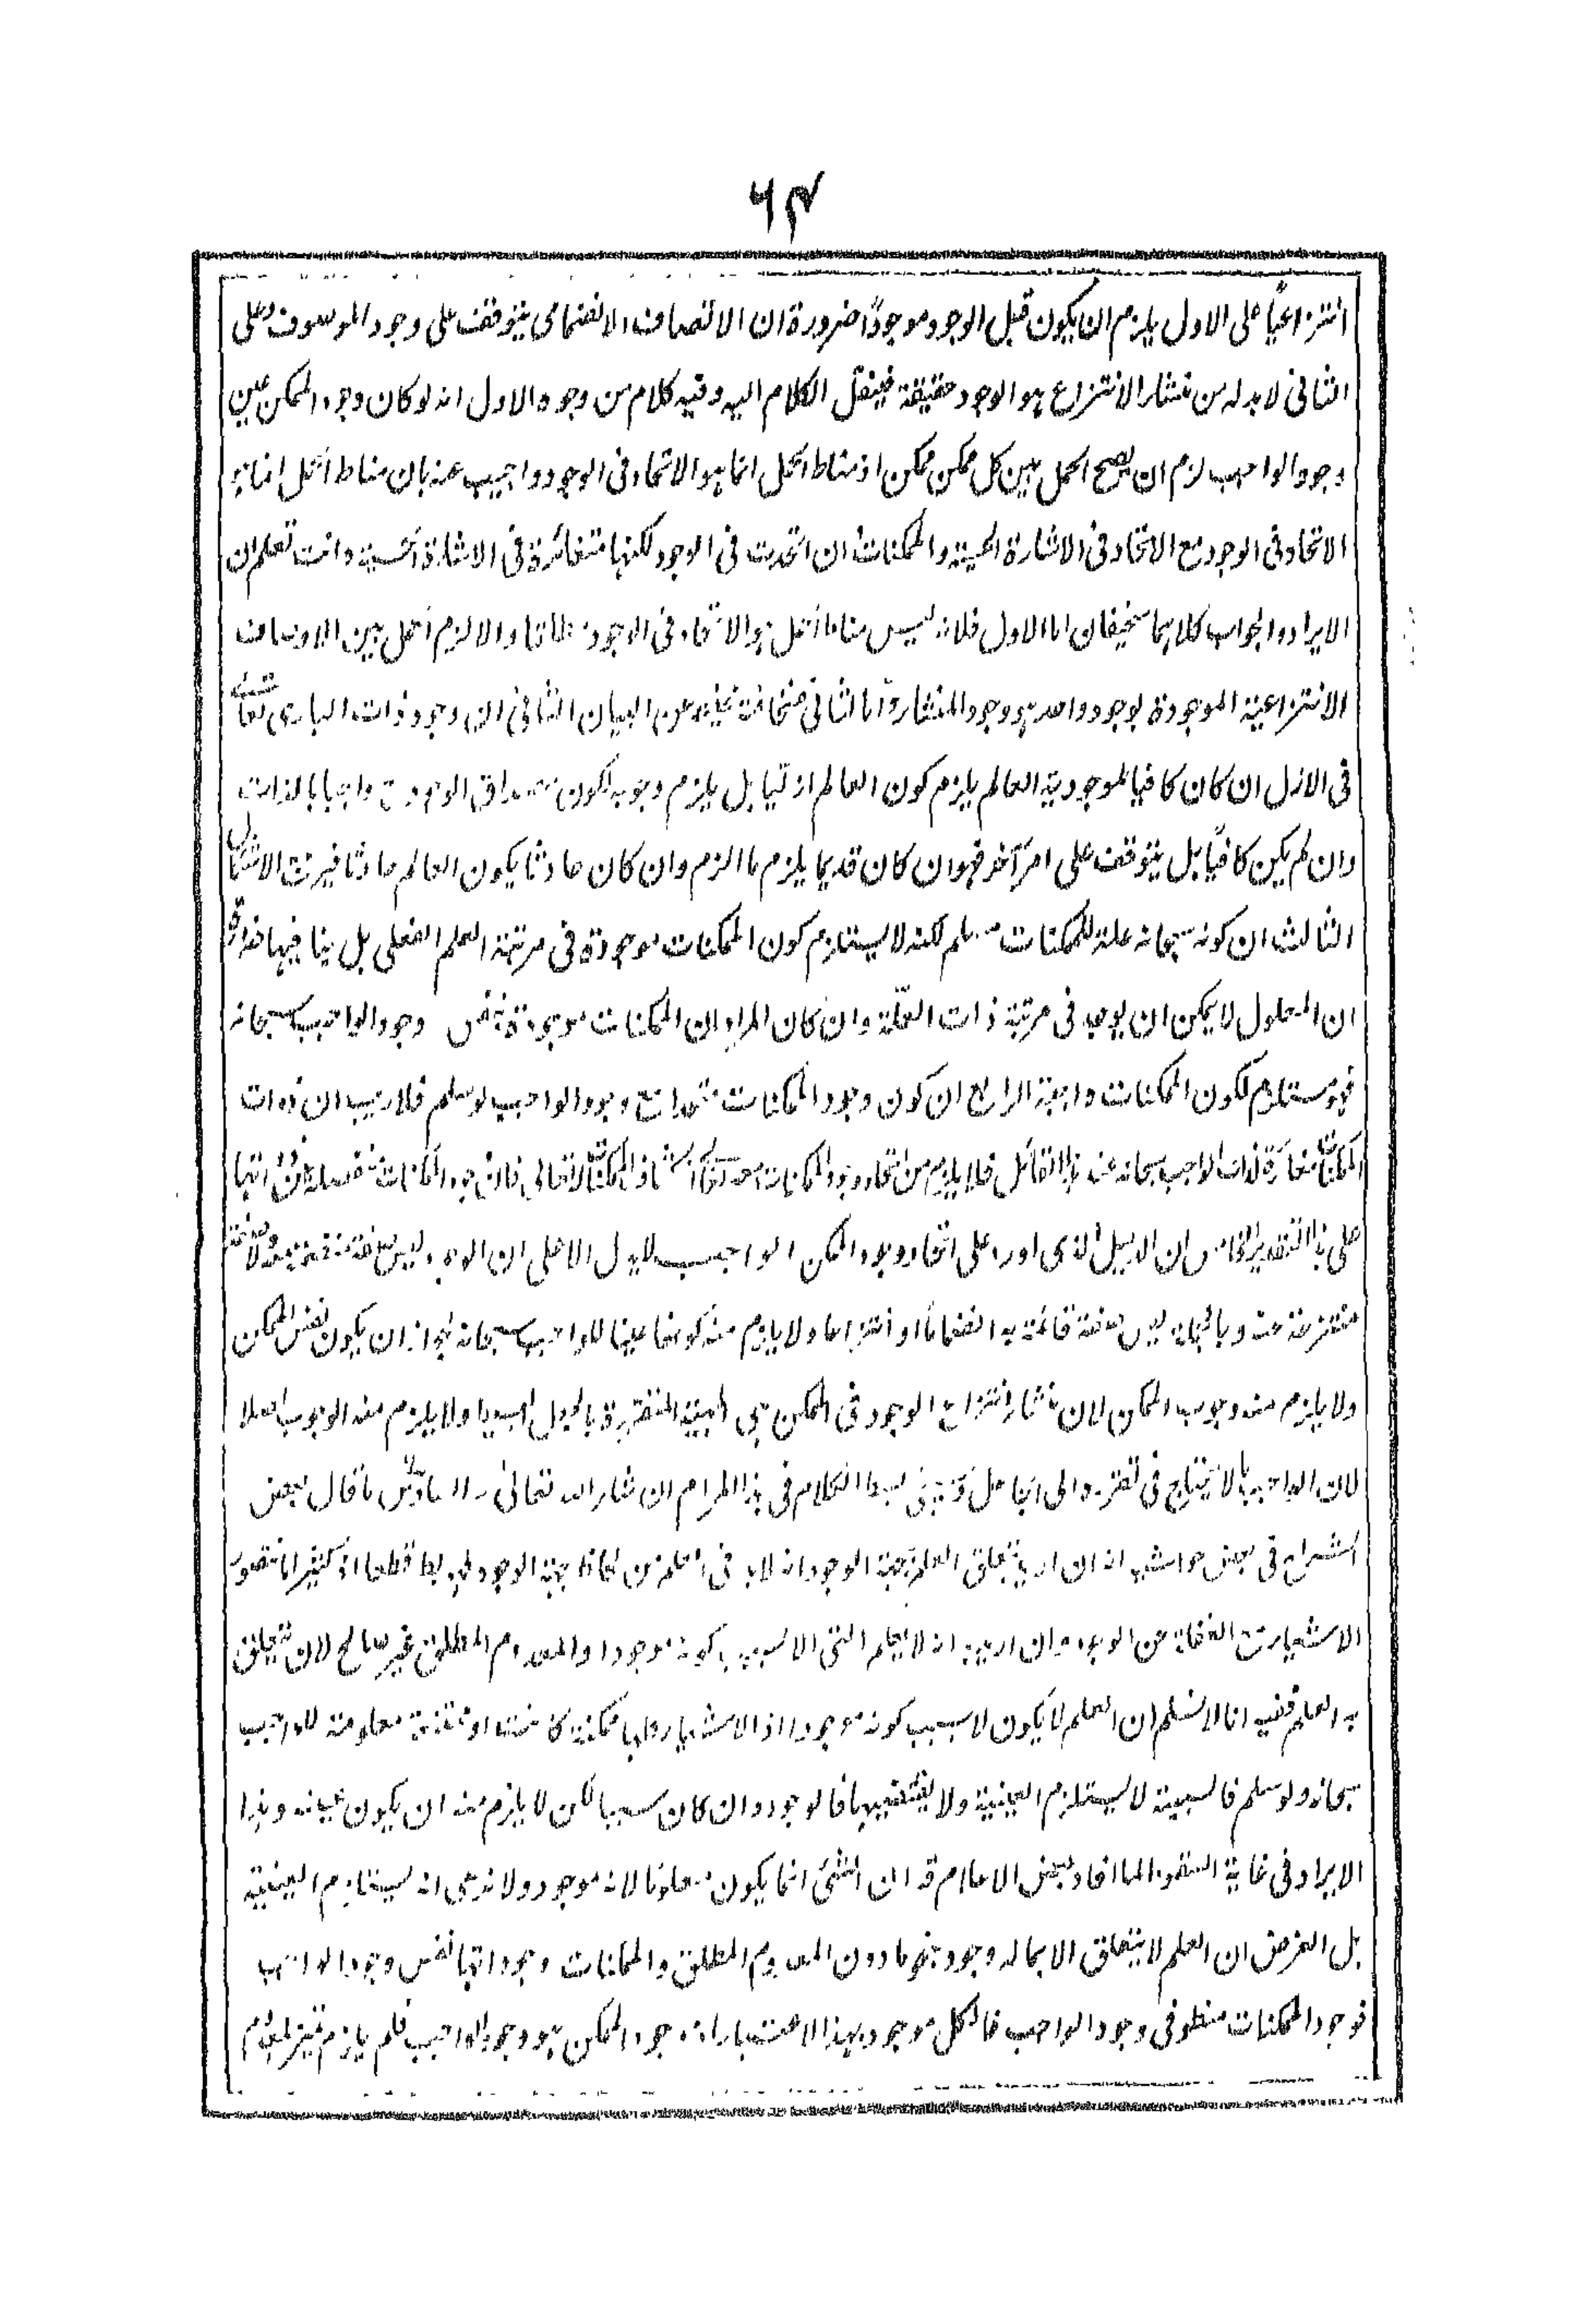 ٦٤
انتزاعيا على الاول يلزم ان يكون قبل الوجود موجودا ضرورة ان الاتصاف الانضمامي يتوقف على وجود الموصوف وعلى
الثاني لا بد له من منشأ الانتزاع هو الوجود حقيقة فينقل الكلام اليه وفيه كلام من وجوه الاول انه لو كان وجود الممكن عين
وجود الواجب لزم ان يصح الحمل بين كل ممكن ممكن اذ مناط الحمل انما هو الاتحاد في الوجود واجيب عنه بان مناط الحمل انما هو
الاتحاد في الوجود مع الاتحاد في الاشارة الحسية والممكنات ان اتحدت في الوجود لكنها متغائرة في الاشارة الحسية وانت تعلم ان
الايراد والجواب كلاهما سخيفان اما الاول فلانه ليس مناط الحمل هو الاتحاد في الوجود مطلقا والا لزم الحمل بين الاوصاف
الانتزاعية الموجودة بوجود واحد هو وجود المنشأ واما الثاني فسخافته غنية عن البيان الثاني ان وجود ذات الباري تعالى
في الازل ان كان كافيا لموجودية العالم يلزم كون العالم ازليا بل يلزم وجوبه لكون مصداق الوجود ح واجبا بالذات
وان لم يكن كافيا بل يتوقف على امر آخر فهو ان كان قديما يلزم ما الزم وان كان حادثا يكون العالم حادثا فيرت الاشكال
الثالث ان كونه سبحانه علة للممكنات مسلم لكنه لا يستلزم كون الممكنات موجودة في مرتبة العلم الفعلي بل ينافيها ضرورة
ان المعلول لا يمكن ان يوجد في مرتبة ذات العلة وان كان المراد ان الممكنات موجودة بنفس وجود الواجب سبحانه
فهو مستلزم لكون الممكنات واجبة الرابع ان كون وجود الممكنات متحدا مع وجود الواجب لو سلم فلا ريب ان ذوات
الممكنات مغائرة لذات الواجب سبحانه عند هذا القائل فلا يلزم من اتحاد وجود الممكنات معه تعالى
على هذا التقدير الخامس ان الدليل الذي اورد على اتحاد وجود الممكن الواجب لا يدل الا على ان الوجود ليس صفة منضمة ولا صفة
منتزعة عنه وبالجملة ليس صفة قائمة به انضماما او انتزاعا ولا يلزم منه كونه عينا للواجب سبحانه لجواز ان يكون نفس الممكن
ولا يلزم منه وجوب الممكن لان منشأ انتزاع الوجود في الممكن هي المهية المتقررة بالجعل البسيط ولا يلزم منه الوجوب اصلا
لان الواجب ما لا يحتاج في تقرره الى الجاعل وسيجئ بسط الكلام في هذا المرام ان شاء الله تعالى السادس ما قال بعض
الشراح في بعض حواشيه انه ان اريد بتعلق العلم بجهة الوجود انه لا بد في العلم من لحاظ جهة الوجود فهو بط قطعا اذ كثيرا ما نتصور
الاشياء مع الغفلة عن الوجود وان اريد به انه لا يعلم الشئ الا بسبب كونه موجودا والمعدوم المطلق غير صالح لان يتعلق
به العلم ففيه انا لا نسلم ان العلم لا يكون الا بسبب كونه موجودا اذ الاشياء ممكنة كانت او ممتنعة معلومة للواجب
سبحانه ولو سلم فالسببية لا يستلزم العينية ولا يقتضيها فالوجود وان كان سببا لكن لا يلزم منه ان يكون عينه وهذا
الايراد في غاية السقوط لما افاد بعض الاعلام قد ان الشئ انما يكون معلوما لانه موجود ولا ندعي انه يستلزم العينية
بل الغرض ان العلم لا يتعلق الا بما له وجود بنحو ما دون المعدوم المطلق والممكنات وجوداتها نفس وجود الواجب
فوجود الممكنات منطو في وجود الواجب فالكل موجود بهذا الاعتبار اذ وجود الممكن هو وجود الواجب فلم يلزم تميز المعدوم